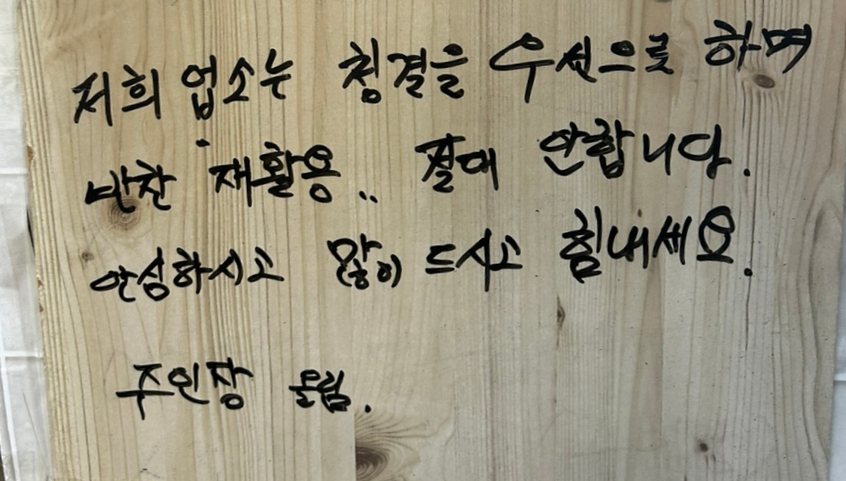 저희 업소는 청결을 우선으로 하며
반찬 재활용.. 절대 안합니다.
안심하시고 많이 드시고 힘내세요.
주인장 올림.